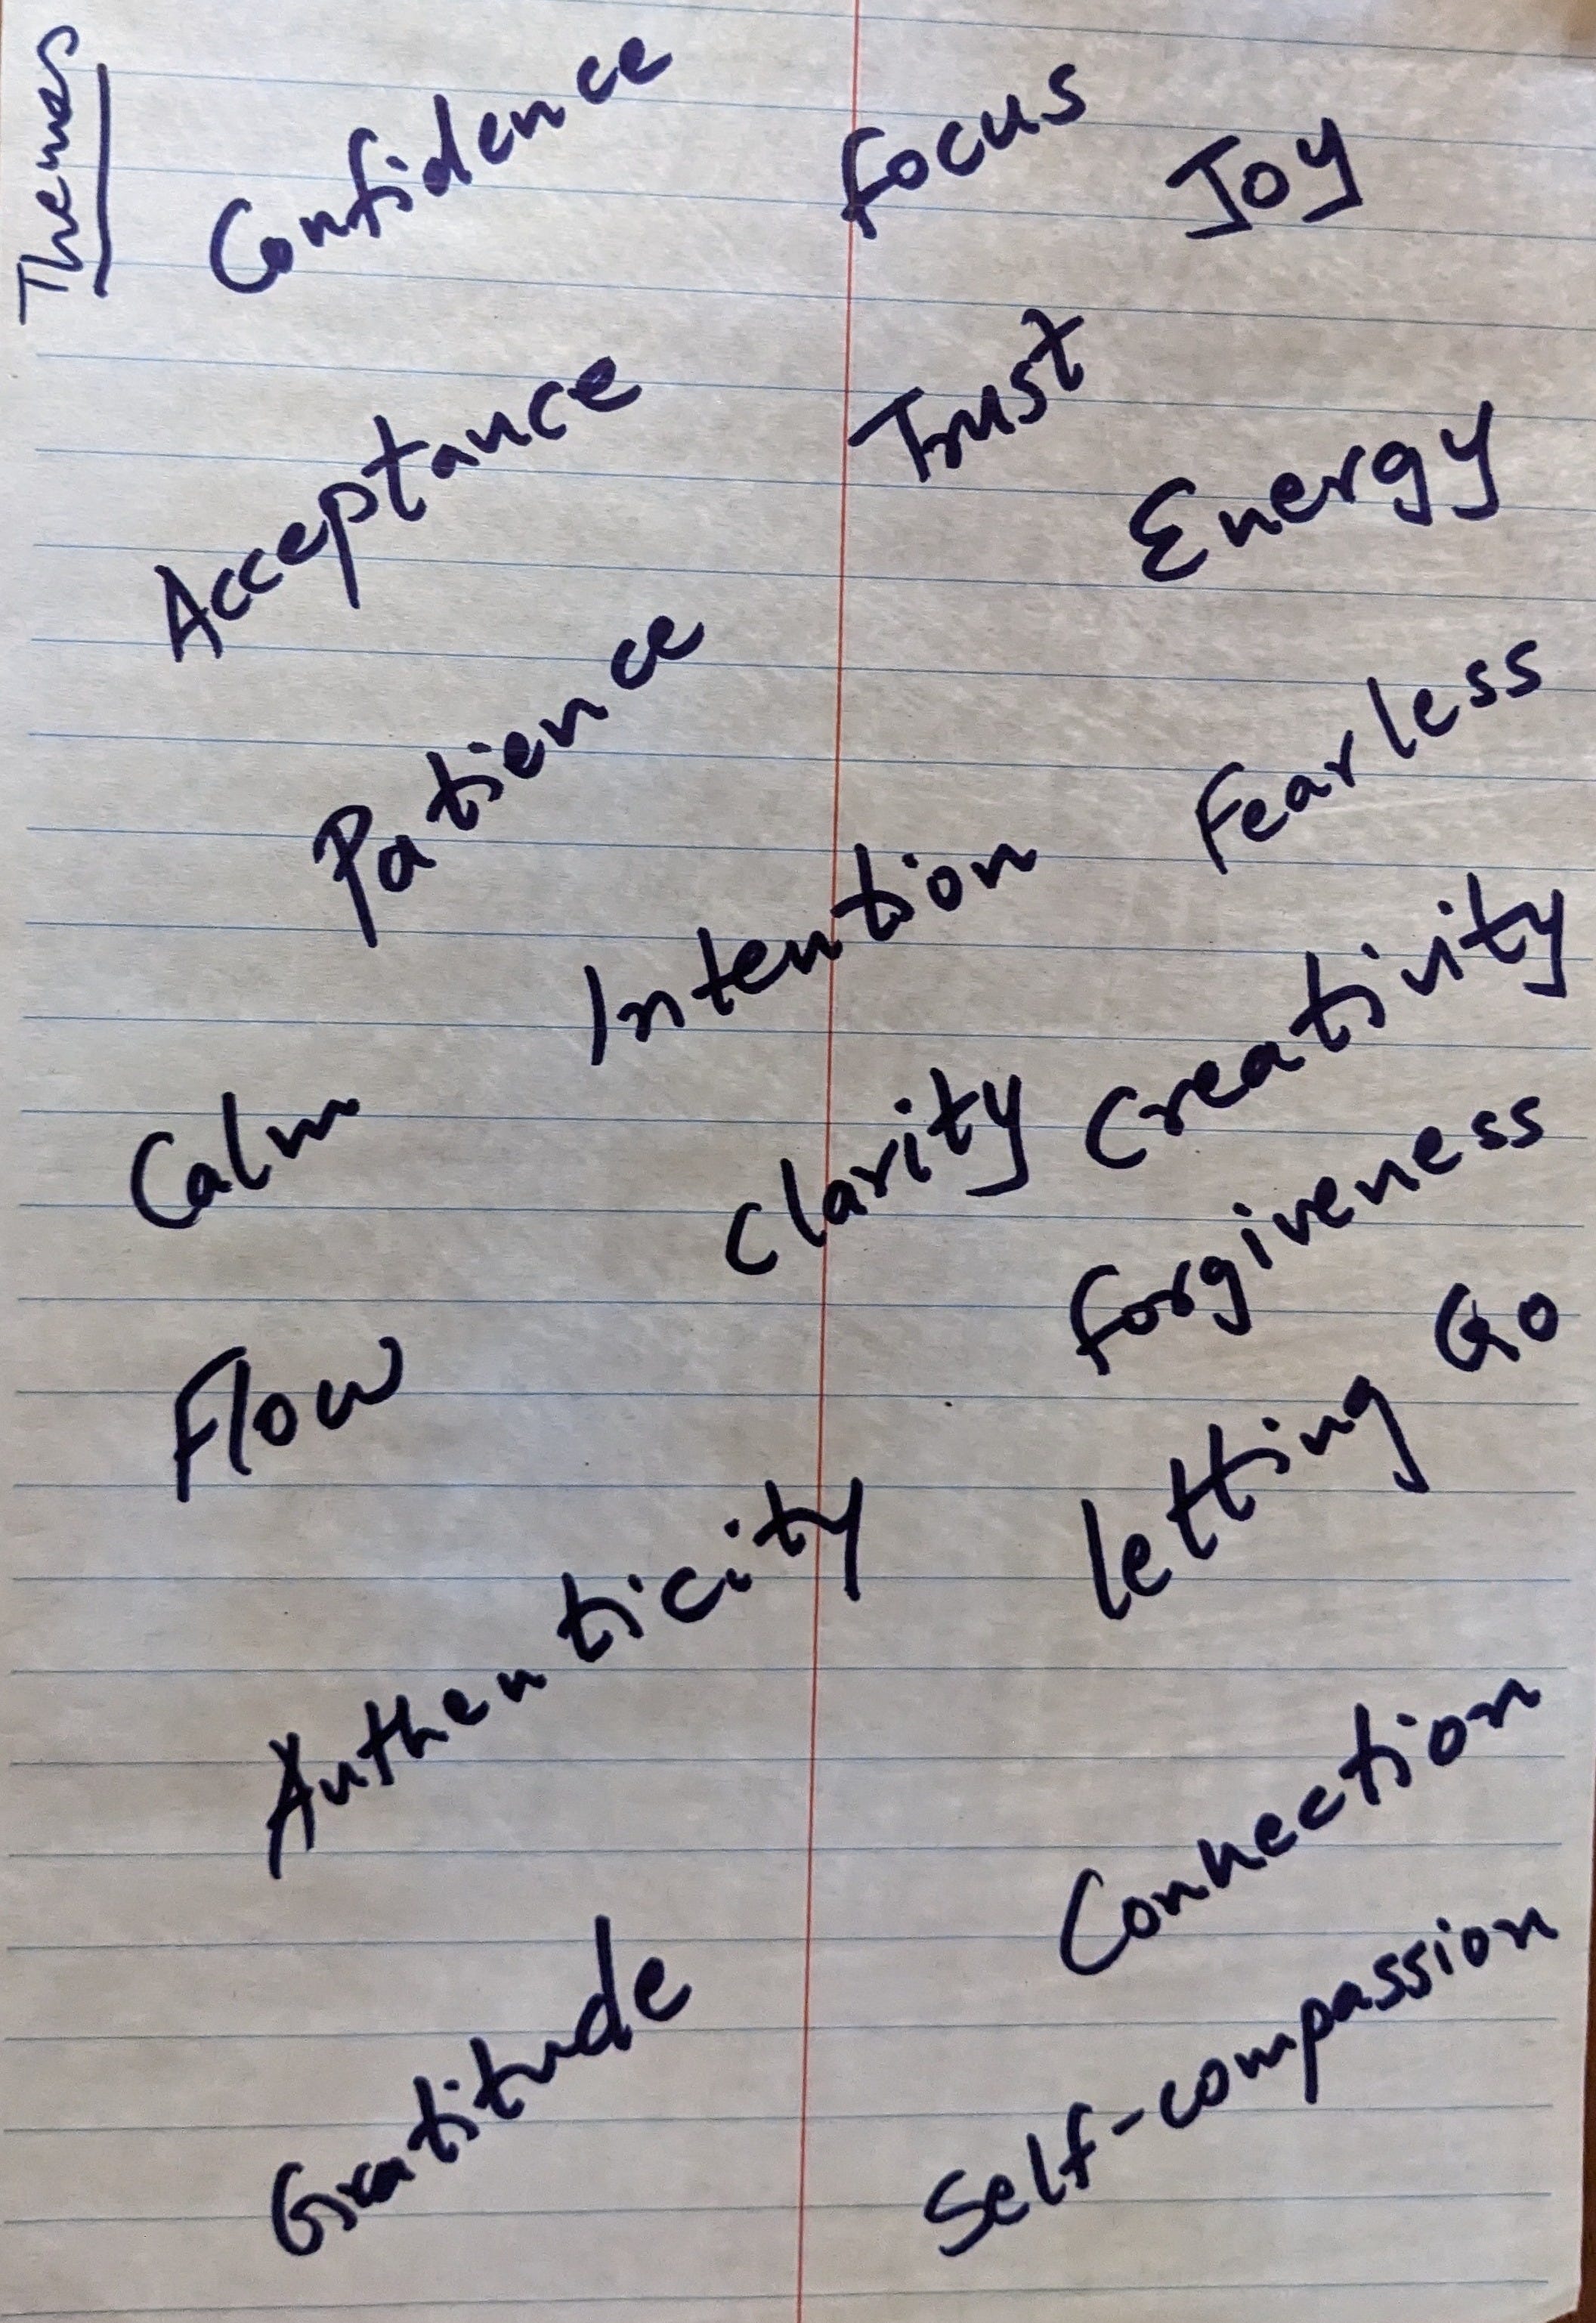 Themes
Confidence
Focus
Joy
Acceptance
Trust
Energy
Patience
Fearless
Intention
Creativity
Calm
Clarity
Forgiveness
Flow
Letting Go
Authenticity
Connection
Gratitude
Self-compassion